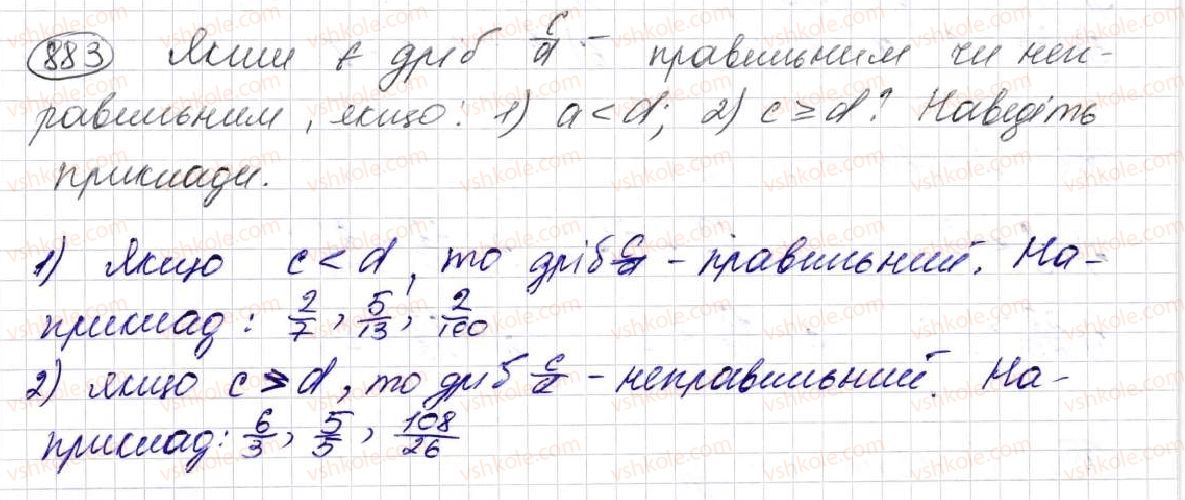 883 Яким є дріб c/d – правильним чи неп-
равильним, якщо: 1) a < d; 2) c ≥ d? Наведіть
приклади.
1) Якщо c < d, то дріб c/d – правильний. На-
приклад: 2/7, 5/13, 2/100
2) якщо c ≥ d, то дріб c/d – неправильний. На-
приклад: 6/3, 5/5, 108/26